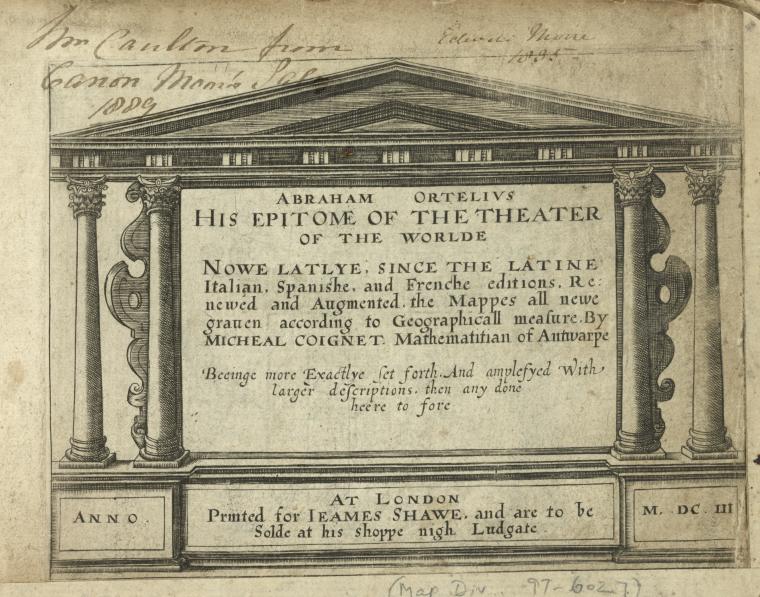 Wm Caulton from
Canon Moore's Sale
1889
Edward Moore
ABRAHAM ORTELIVS
HIS EPITOME OF THE THEATER
OF THE WORLDE
NOWE LATLYE, SINCE THE LATINE
Italian, Spanishe, and Frenche editions, Re:
newed and Augmented, the Mappes all newe
grauen according to Geographicall measure. By
MICHEAL COIGNET. Mathematitian of Antwarpe
Beeinge more Exactlye set forth, And amplefyed With
larger descriptions, then any done
heere to fore
ANNO.
AT LONDON
Printed for IEAMES SHAWE, and are to be
Solde at his shoppe nigh Ludgate
M. DC. III
(Map Div. 97-6027)